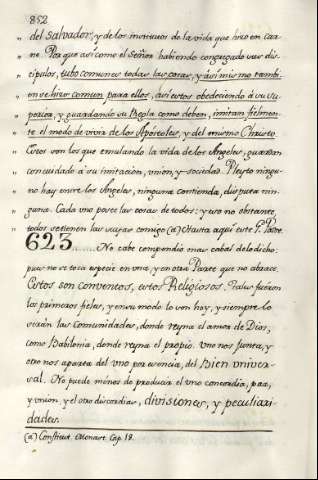 852
del Salvador, y de los institutos de la vida que hizo en car-
ne. Por que asi como el Señor habiendo congregado sus dis-
cipulos, tubo comunes todas las cosas, y asi mismo tambi-
en se hizo comun para ellos, asi estos obedeciendo á su Su-
perior, y guardando su Regla como deben, imitan fielmen-
te el modo de vivir de los Apóstoles, y del mismo Christo.
Estos son los que emulando la vida de los Angeles, guardan
con cuidado á su imitacion, union, y sociedad. Pleyto ningu-
no hay entre los Angeles, ninguna contienda, disputa nin-
guna. Cada uno posee las cosas de todos: y eso no obstante,
todos retienen las suyas consigo (a) Hasta aqui este S. Padre.
623........ No cabe compendio mas cabal de lo dicho:
pues no se toca especie en una, y en otra Parte que no abrace.
Estos son conventos, estos Religiosos. Tales fueron
los primeros fieles, y en su modo lo son hoy, y siempre lo
serán las Comunidades, donde reyna el amor de Dios,
como Babilonia, donde reyna el propio. Uno nos junta, y
otro nos aparta del uno por esencia, del Bien univer-
sal. No puede ménos de producir el uno concordia, paz,
y union, y el otro discordias, divisiones, y peculiari-
dades.
(a) Constitut. Monast. Cap. 18.